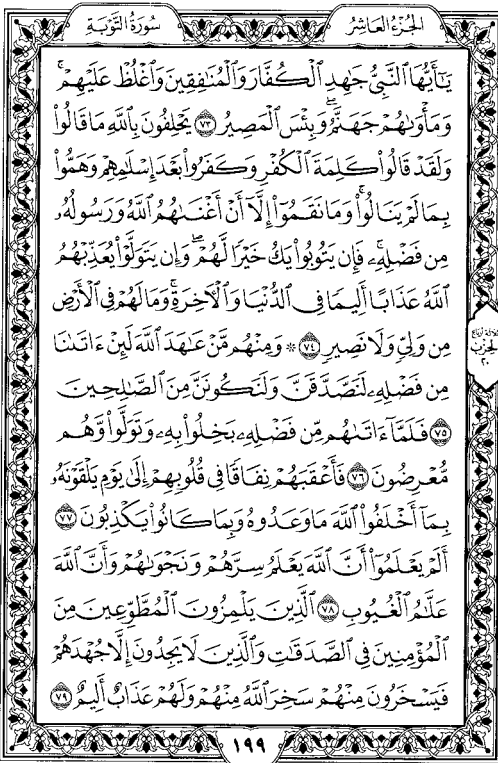 سُورَةُ التَّوْبَةِ
الجُزْءُ العَاشِرُ
يَـٰٓأَيُّهَا ٱلنَّبِىُّ جَـٰهِدِ ٱلْكُفَّارَ وَٱلْمُنَـٰفِقِينَ وَٱغْلُظْ عَلَيْهِمْ ۚ
وَمَأْوَىٰهُمْ جَهَنَّمُ ۖ وَبِئْسَ ٱلْمَصِيرُ ٧٣ يَحْلِفُونَ بِٱللَّهِ مَا قَالُوا۟
وَلَقَدْ قَالُوا۟ كَلِمَةَ ٱلْكُفْرِ وَكَفَرُوا۟ بَعْدَ إِسْلَـٰمِهِمْ وَهَمُّوا۟
بِمَا لَمْ يَنَالُوا۟ ۚ وَمَا نَقَمُوٓا۟ إِلَّآ أَنْ أَغْنَىٰهُمُ ٱللَّهُ وَرَسُولُهُۥ
مِن فَضْلِهِۦ ۚ فَإِن يَتُوبُوا۟ يَكُ خَيْرًا لَّهُمْ ۖ وَإِن يَتَوَلَّوْا۟ يُعَذِّبْهُمُ
ٱللَّهُ عَذَابًا أَلِيمًا فِى ٱلدُّنْيَا وَٱلْـَٔاخِرَةِ ۚ وَمَا لَهُمْ فِى ٱلْأَرْضِ
مِن وَلِىٍّ وَلَا نَصِيرٍ ٧٤ * وَمِنْهُم مَّنْ عَـٰهَدَ ٱللَّهَ لَئِنْ ءَاتَىٰنَا
مِن فَضْلِهِۦ لَنَصَّدَّقَنَّ وَلَنَكُونَنَّ مِنَ ٱلصَّـٰلِحِينَ
٧٥ فَلَمَّآ ءَاتَىٰهُم مِّن فَضْلِهِۦ بَخِلُوا۟ بِهِۦ وَتَوَلَّوا۟ وَّهُم
مُّعْرِضُونَ ٧٦ فَأَعْقَبَهُمْ نِفَاقًا فِى قُلُوبِهِمْ إِلَىٰ يَوْمِ يَلْقَوْنَهُۥ
بِمَآ أَخْلَفُوا۟ ٱللَّهَ مَا وَعَدُوهُ وَبِمَا كَانُوا۟ يَكْذِبُونَ ٧٧
أَلَمْ يَعْلَمُوٓا۟ أَنَّ ٱللَّهَ يَعْلَمُ سِرَّهُمْ وَنَجْوَىٰهُمْ وَأَنَّ ٱللَّهَ
عَلَّـٰمُ ٱلْغُيُوبِ ٧٨ ٱلَّذِينَ يَلْمِزُونَ ٱلْمُطَّوِّعِينَ مِنَ
ٱلْمُؤْمِنِينَ فِى ٱلصَّدَقَـٰتِ وَٱلَّذِينَ لَا يَجِدُونَ إِلَّا جُهْدَهُمْ
فَيَسْخَرُونَ مِنْهُمْ ۙ سَخِرَ ٱللَّهُ مِنْهُمْ وَلَهُمْ عَذَابٌ أَلِيمٌ ٧٩
ثلاثة أرباع
الحزب
٢٠
١٩٩